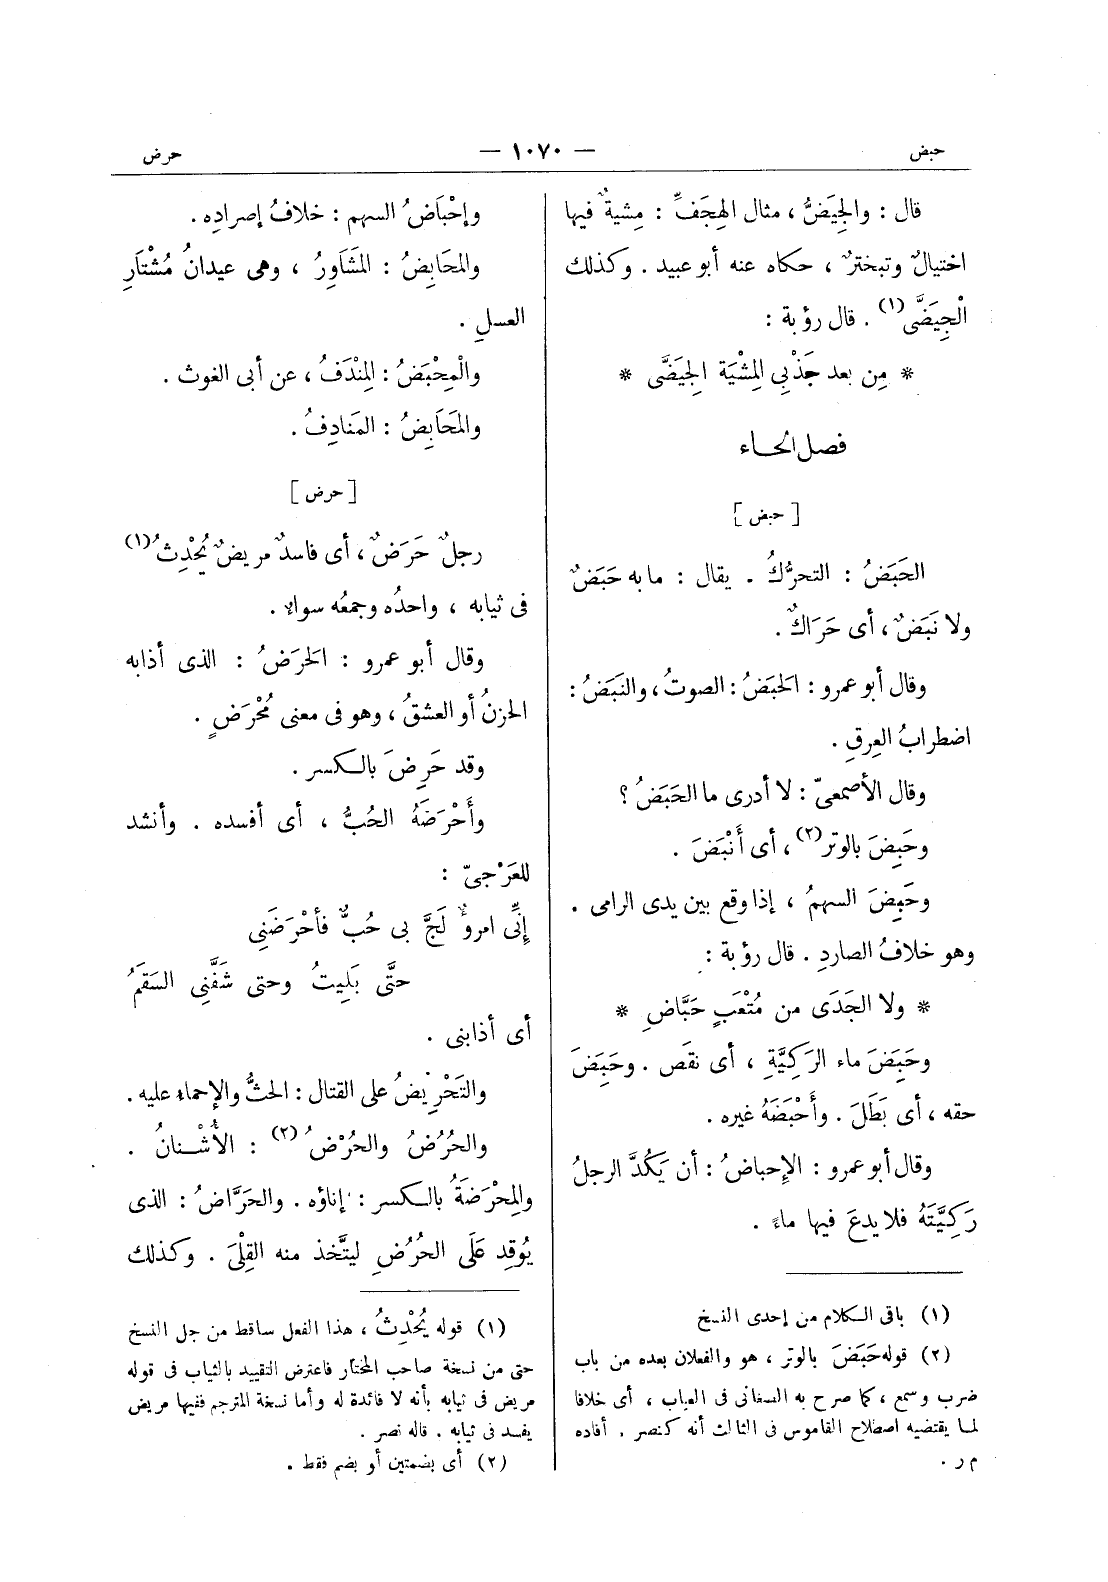 حبض
— ١٠٧٠ —
حرض
قال : والجِيَضُّ ، مثال الهِجَفِّ : مِشيةٌ فيها
اختيالٌ وتبخترٌ ، حكاه عنه أبو عبيد . وكذلك
الْجِيَضَّى (١) . قال رؤبة :
* مِن بعد جَذْبِي المِشْيَة الجِيَضَّى *
فصل الحاء
[ حبض ]
الحَبَضُ : التحرُّكُ . يقال : ما به حَبَضٌ
ولا نَبَضٌ ، أى حَرَاكٌ .
وقال أبو عمرو : الحَبَضُ : الصوتُ ، والنَبَضُ :
اضطرابُ العِرقِ .
وقال الأصمعىّ : لا أدرى ما الحَبَضُ ؟
وحَبِضَ بالوتر (٢) ، أى أَنْبَضَ .
وحَبِضَ السهمُ ، إذا وقع بين يدى الرامى .
وهو خلافُ الصاردِ . قال رؤبة :
* ولا الجَدَى من مُتْعَبٍ حَبَّاضِ *
وحَبَضَ ماء الرَكِيَّةِ ، أى نقَص . وحَبَضَ
حقه ، أى بَطَلَ . وأَحْبَضَهُ غيره .
وقال أبو عمرو : الإحباضُ : أن يَكُدَّ الرجلُ
رَكِيَّتَهُ فلا يدعَ فيها ماءً .
(١) باقى الكلام من إحدى النسخ
(٢) قوله حَبَضَ بالوتر ، هو والفعلان بعده من باب
ضرب وسمع ، كما صرح به السغانى فى العباب ، أى خلافا
لما يقتضيه اصطلاح القاموس فى الثالث أنه كنصر . أفاده
م ر .
وإحْبَاضُ السهم : خلافُ إصرادِه .
والمَحَابِضُ : المَشَاوِرُ ، وهى عيدانُ مُشْتَارِ
العسلِ .
والْمِحْبَضُ : المِنْدَفُ ، عن أبى الغوث .
والمَحَابِضُ : المَنادِفُ .
[ حرض ]
رجلٌ حَرَضٌ ، أى فاسدٌ مريضٌ يُحْدِثُ (١)
فى ثيابه ، واحدُه وجمعُه سواء .
وقال أبو عمرو : الحَرَضُ : الذى أذابه
الحزنُ أو العشقُ ، وهو فى معنى مُحْرَضٍ .
وقد حَرِضَ بالكسر .
وأَحْرَضَهُ الحُبُّ ، أى أفسده . وأنشد
للعَرْجىّ :
إنِّى امرؤٌ لَجَّ بى حُبٌّ فأحْرَضَنِى
حتَّى بَلِيتُ وحتى شَفَّنِى السَقَمُ
أى أذابنى .
والتَحْرِيضُ على القتال : الحثُّ والإحماء عليه .
والحُرُضُ والحُرْضُ (٢) : الأُشْنانُ .
والمِحْرَضَةُ بالكسر : إناؤه . والحَرَّاضُ : الذى
يُوقِد عَلَى الحُرُضِ ليتَّخذ منه القِلْىَ . وكذلك
(١) قوله يُحْدِثُ ، هذا الفعل ساقط من جل النسخ
حتى من نسخة صاحب المختار فاعترض التقييد بالثياب فى قوله
مريض فى ثيابه بأنه لا فائدة له وأما نسخة المترجم ففيها مريض
يفسد فى ثيابه . قاله نصر .
(٢) أى بضمتين أو بضم فقط .